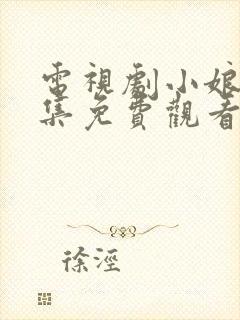 電視劇小娘
集免費觀看
徐涇